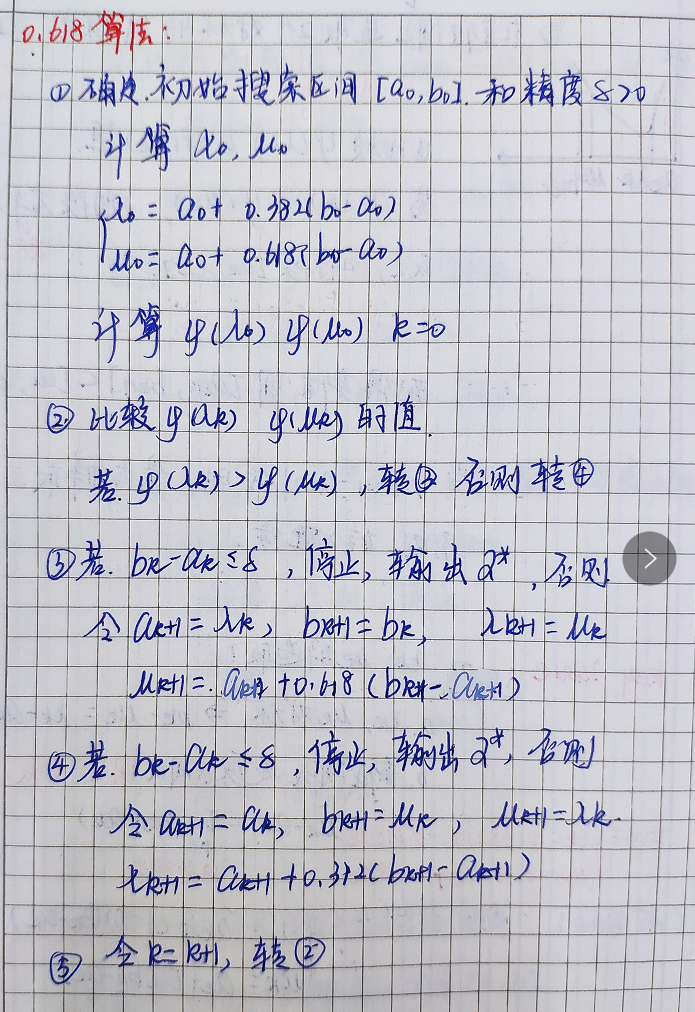 0.618 算法:
① 确定初始搜索区间 [a₀, b₀]. 和精度 δ>0
计算 λ₀, μ₀
λ₀ = a₀ + 0.382(b₀-a₀)
μ₀ = a₀ + 0.618(b₀-a₀)
计算 φ(λ₀) φ(μ₀) k=0
② 比较 φ(λk) φ(μk) 的值.
若. φ(λk) > φ(μk), 转③ 否则转④
③ 若. bk-ak ≤ δ, 停止, 输出 α*, 否则
令 ak+1 = λk, bk+1 = bk, λk+1 = μk
μk+1 = ak+1 + 0.618 (bk+1 - ak+1)
④ 若. bk-ak ≤ δ, 停止, 输出 α*, 否则
令 ak+1 = ak, bk+1 = μk, μk+1 = λk.
λk+1 = ak+1 + 0.382(bk+1 - ak+1)
⑤ 令 k=k+1, 转②